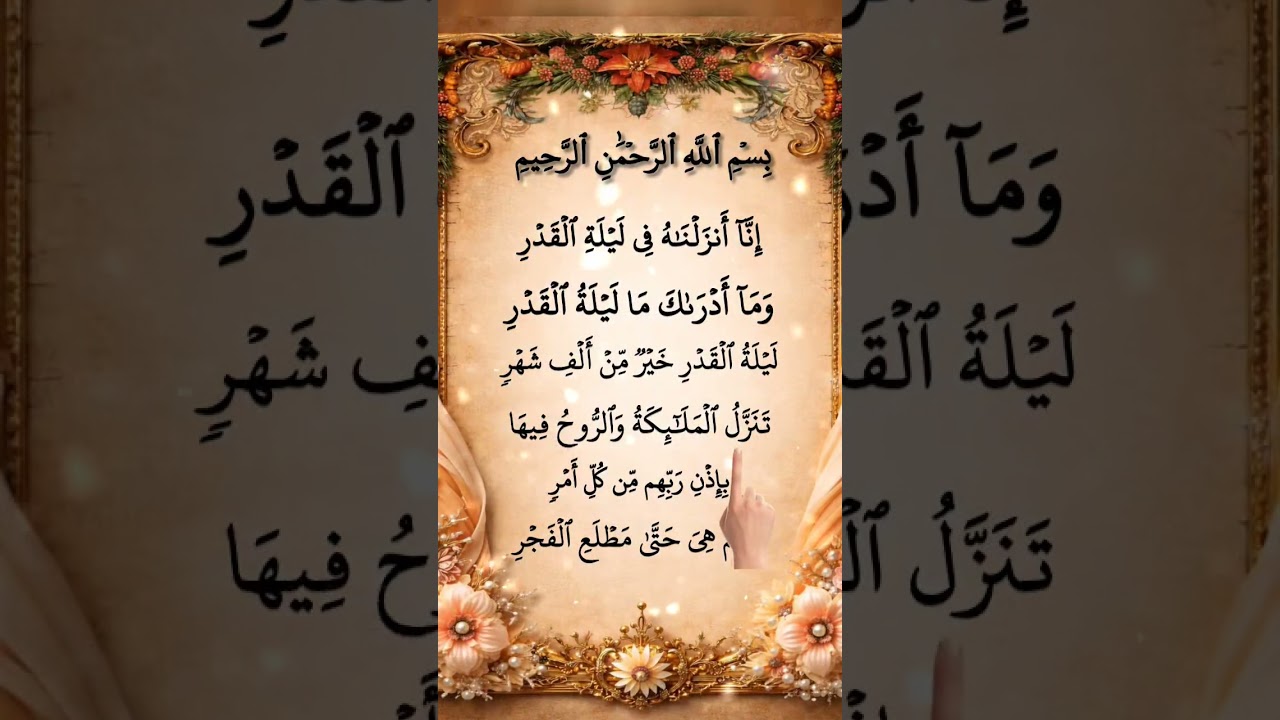 بِسْمِ ٱللَّهِ ٱلرَّحْمَٰنِ ٱلرَّحِيمِ
إِنَّآ أَنزَلْنَٰهُ فِى لَيْلَةِ ٱلْقَدْرِ
وَمَآ أَدْرَىٰكَ مَا لَيْلَةُ ٱلْقَدْرِ
لَيْلَةُ ٱلْقَدْرِ خَيْرٌ مِّنْ أَلْفِ شَهْرٍ
تَنَزَّلُ ٱلْمَلَٰٓئِكَةُ وَٱلرُّوحُ فِيهَا
بِإِذْنِ رَبِّهِم مِّن كُلِّ أَمْرٍ
هِىَ حَتَّىٰ مَطْلَعِ ٱلْفَجْرِ